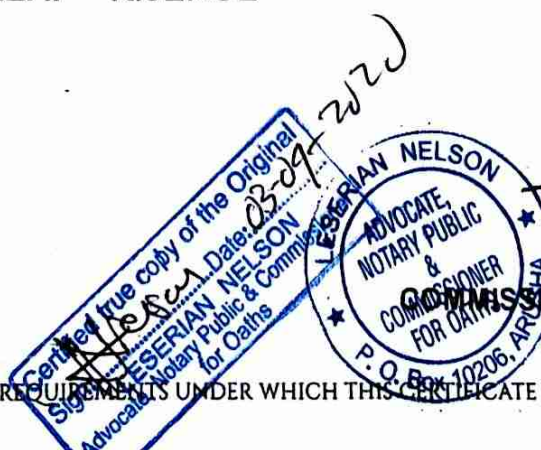 Certified true copy of the Original
Sign Date: 03-09-2020
LESERIAN NELSON
Advocate, Notary Public & Commissioner
for Oaths
LESERIAN NELSON
ADVOCATE,
NOTARY PUBLIC
&
COMMISSIONER
FOR OATHS
P. O. Box 10206, ARUSHA
COMMISS
REQUIREMENTS UNDER WHICH THIS CERTIFICATE